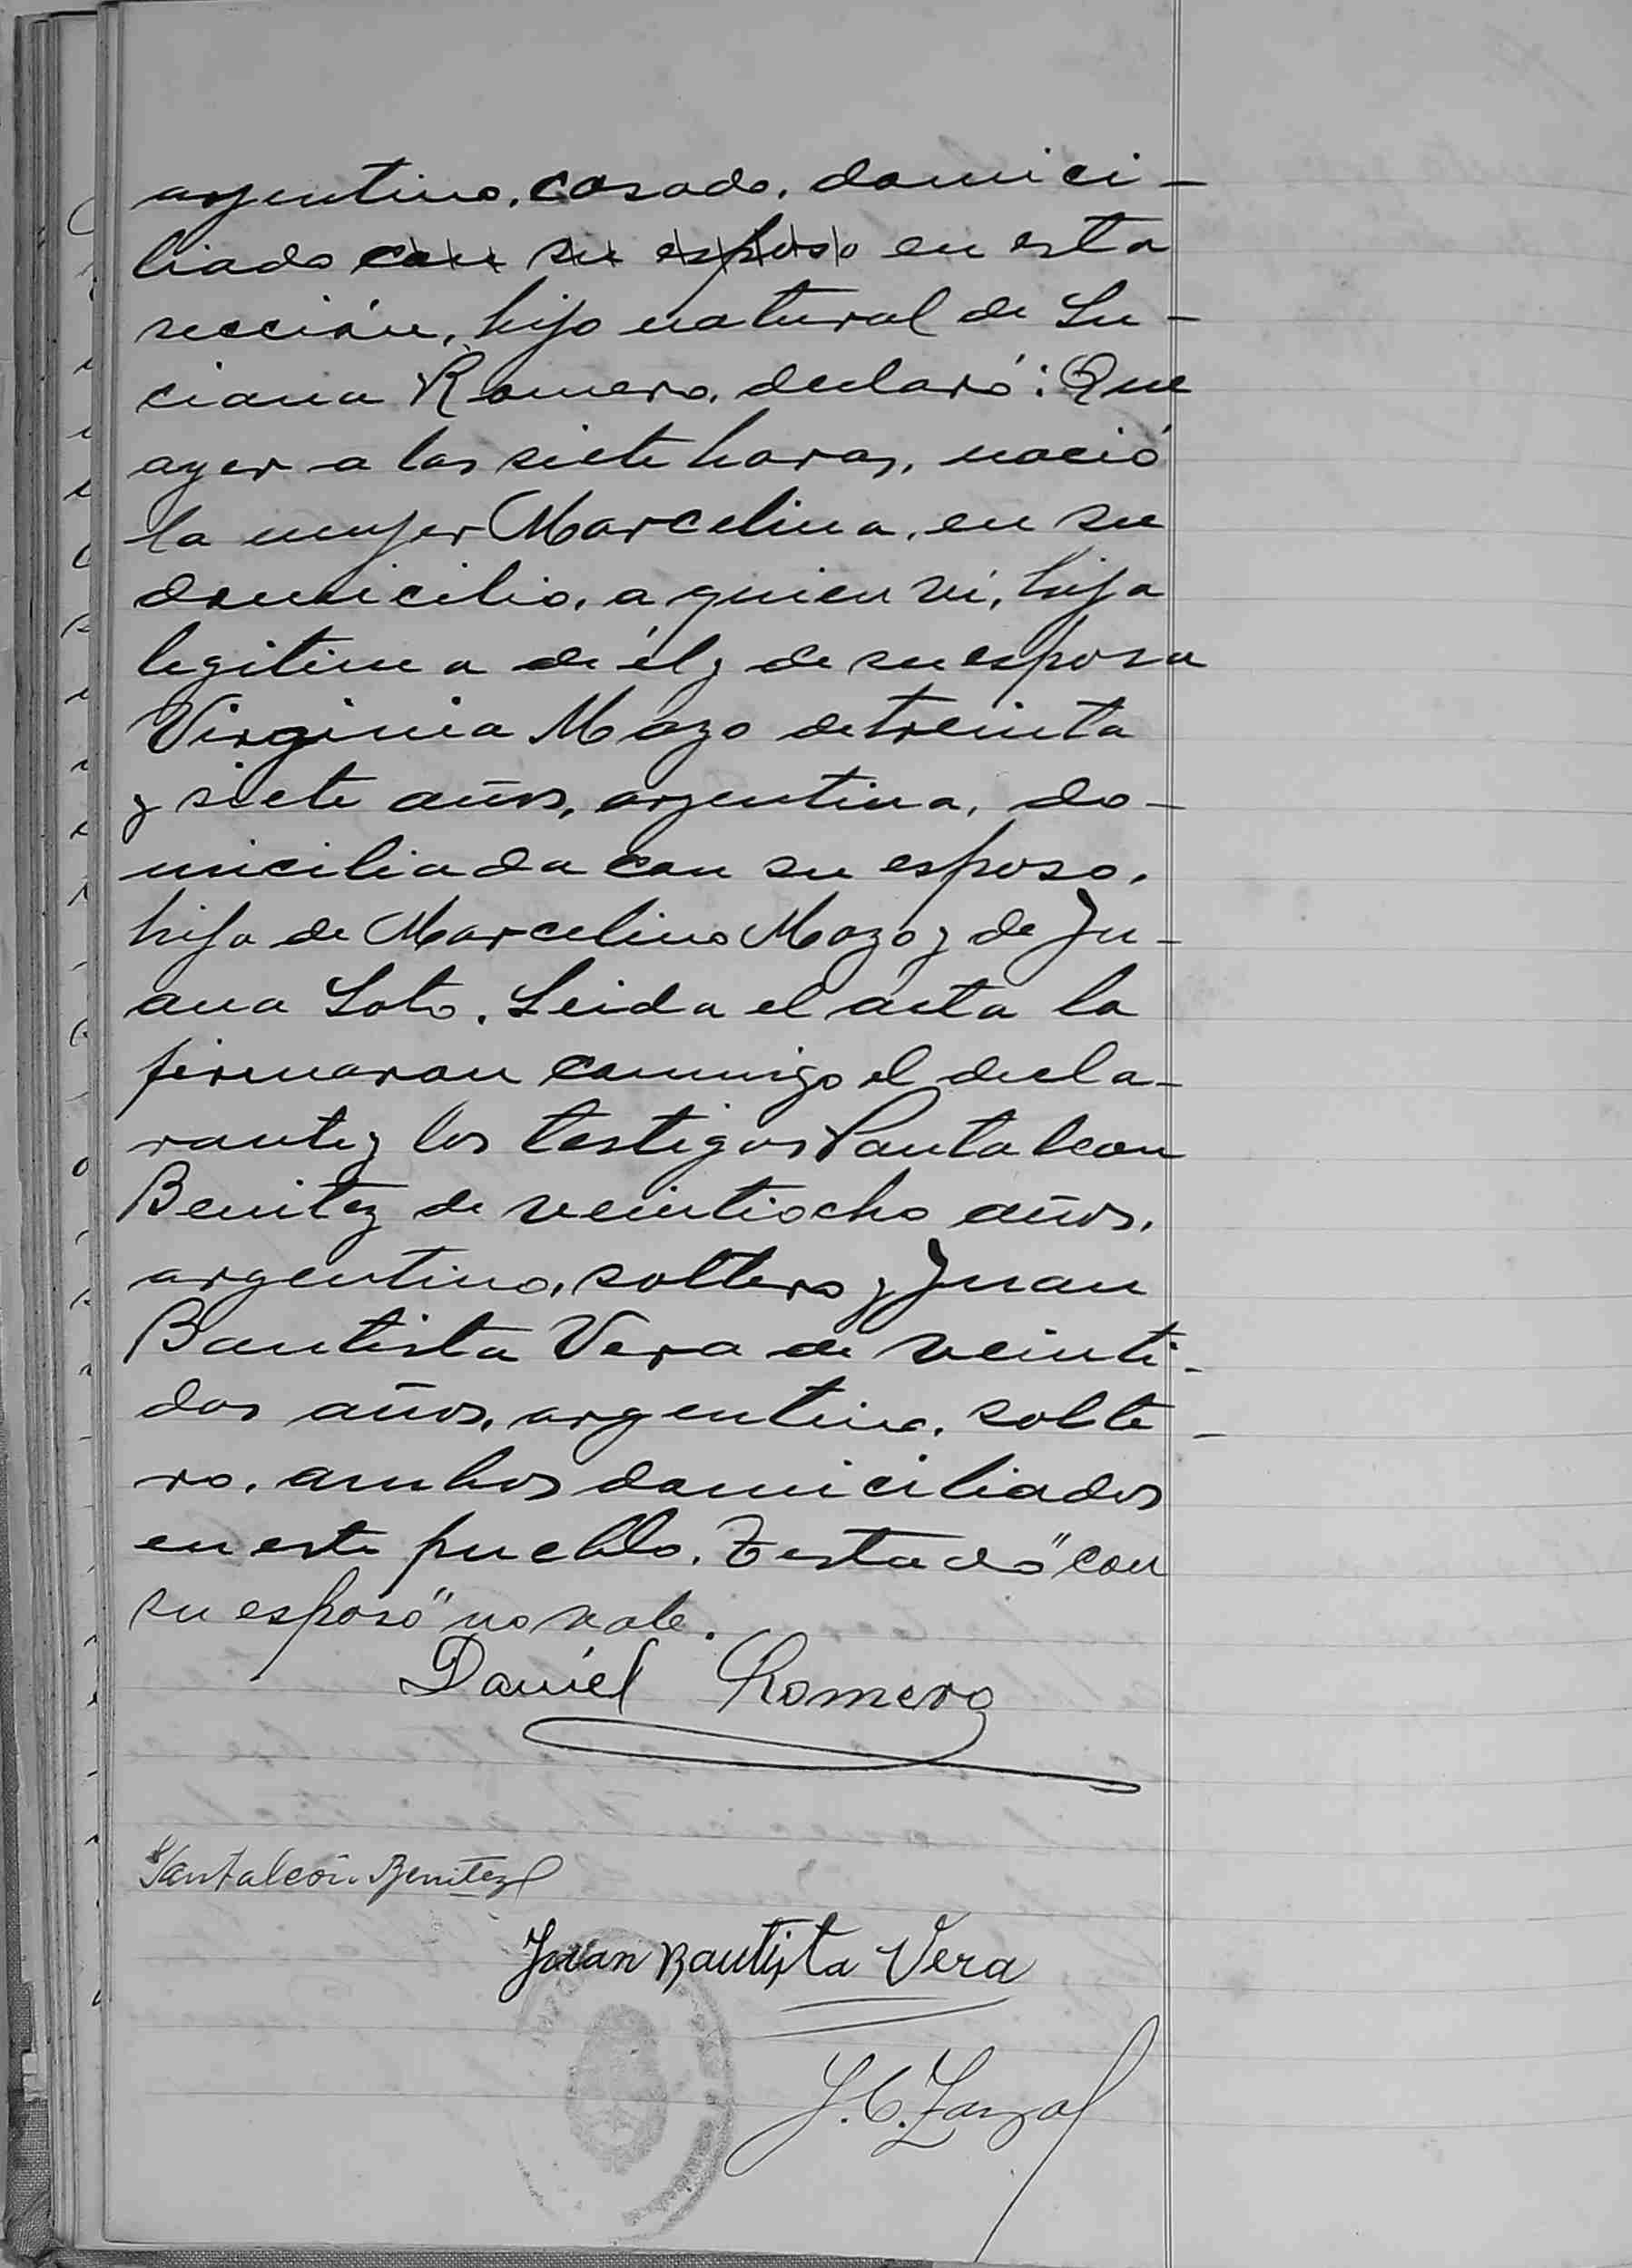 argentino, casado, domici-
liado con su esposo en esta
sección, hijo natural de Lu-
ciana Romero, declaró: Que
ayer a las siete horas, nació
la mujer Marcelina, en su
domicilio, a quien vi, hija
legitima de él y de su esposa
Virginia Mozo de treinta
y siete años, argentina, do-
miciliada con su esposo,
hija de Marcelino Mozo y de Ju-
ana Soto. Leida el acta la
firmaron conmigo el decla-
rante y los testigos Pantaleon
Benitez de veintiocho años,
argentino, soltero y Juan
Bautista Vera de veinti-
dos años, argentino, solte-
ro, ambos domiciliados
en este pueblo. Testado "con
su esposo" no vale.
Daniel Romero
Pantaleón Benitez
Juan Bautista Vera